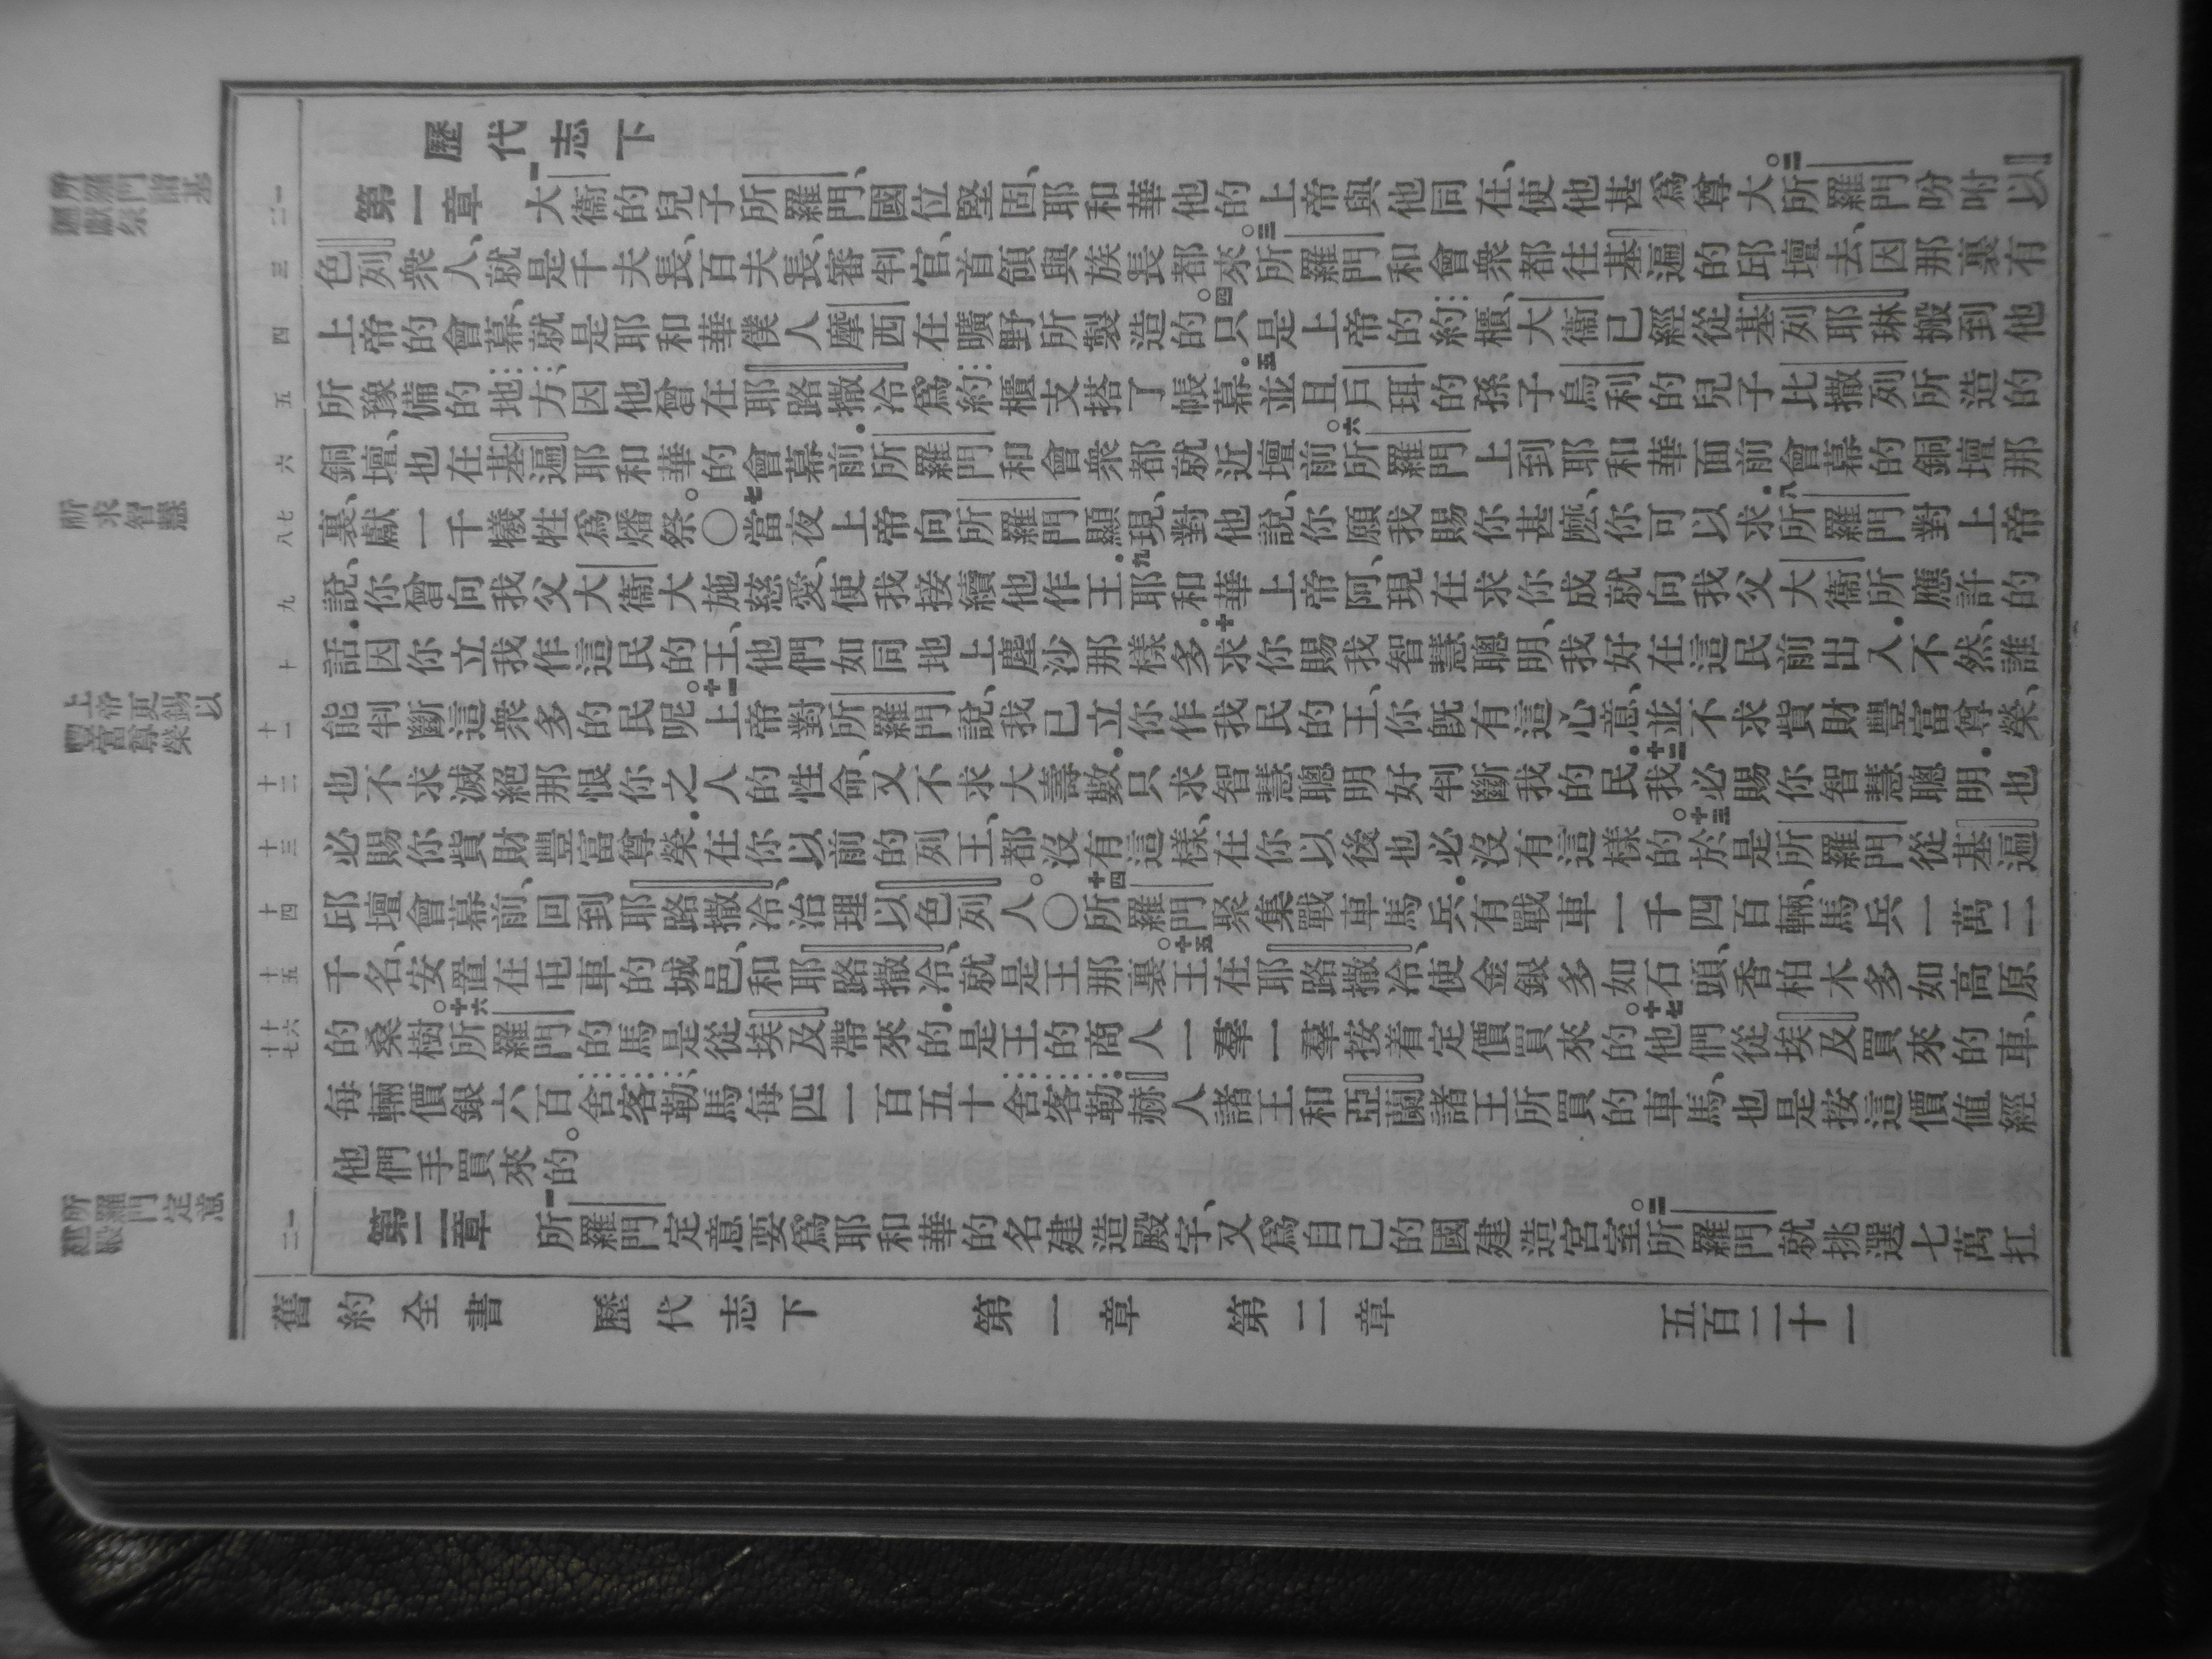 歷代志下
第一章 一大衞的兒子所羅門、國位堅固、耶和華他的上帝與他同在、使他甚爲尊大。二所羅門吩咐以
色列衆人、就是千夫長、百夫長、審判官、首領與族長都來。三所羅門和會衆都往基遍的邱壇去、因那裏有
上帝的會幕、就是耶和華僕人摩西在曠野所製造的。四只是上帝的約櫃、大衞已經從基列耶琳搬到他
所豫備的地方、因他曾在耶路撒冷爲約櫃支搭了帳幕.五並且戶珥的孫子烏利的兒子比撒列所造的
銅壇、也在基遍耶和華的會幕前.所羅門和會衆都就近壇前。六所羅門上到耶和華面前、會幕的銅壇那
裏、獻一千犧牲爲燔祭。〇七當夜上帝向所羅門顯現、對他說、你願我賜你甚麽、你可以求.八所羅門對上帝
說、你曾向我父大衞大施慈愛、使我接續他作王.九耶和華上帝阿、現在求你成就向我父大衞所應許的
話.因你立我作這民的王、他們如同地上塵沙那樣多。十求你賜我智慧聰明、我好在這民前出入.不然、誰
能判斷這衆多的民呢。十一上帝對所羅門說、我已立你作我民的王、你旣有這心意、並不求貲財豐富尊榮、
也不求滅絕那恨你之人的性命、又不求大壽數.只求智慧聰明好判斷我的民.十二我必賜你智慧聰明.也
必賜你貲財豐富尊榮.在你以前的列王、都沒有這樣、在你以後也必沒有這樣的。十三於是所羅門從基遍
邱壇會幕前、回到耶路撒冷、治理以色列人。〇十四所羅門聚集戰車馬兵.有戰車一千四百輛、馬兵一萬二
千名、安置在屯車的城邑、和耶路撒冷、就是王那裏。十五王在耶路撒冷、使金銀多如石頭、香柏木多如高原
的桑樹。十六所羅門的馬是從埃及帶來的.是王的商人一羣一羣按着定價買來的。十七他們從埃及買來的車、
每輛價銀六百舍客勒、馬每匹一百五十舍客勒.赫人諸王和亞蘭諸王所買的車馬、也是按這價值經
他們手買來的。
第二章 一所羅門定意要爲耶和華的名建造殿宇、又爲自己的國建造宮室。二所羅門就挑選七萬扛
舊約全書 歷代志下 第一章 第二章 五百二十一
所羅門詣基
遍獻祭
祈求智慧
上帝更錫以
豐富尊榮
所羅門定意
建殿
一
二
三
四
五
六
七
八
九
十
十一
十二
十三
十四
十五
十六
十七
一
二